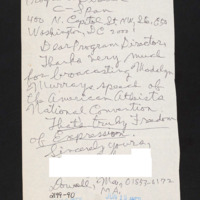 C-Span
400 N. Capitol St NW, Ste. 650
Washington, D.C. 20001
Dear Program Director,
Thanks very much
for broadcasting Madalyn
Murray's speach of
the American Atheists
National Convention.
That's truly Freedom
of Expression.
Sincerely yours,
Lowell, Mass 01852-2172
M.A.